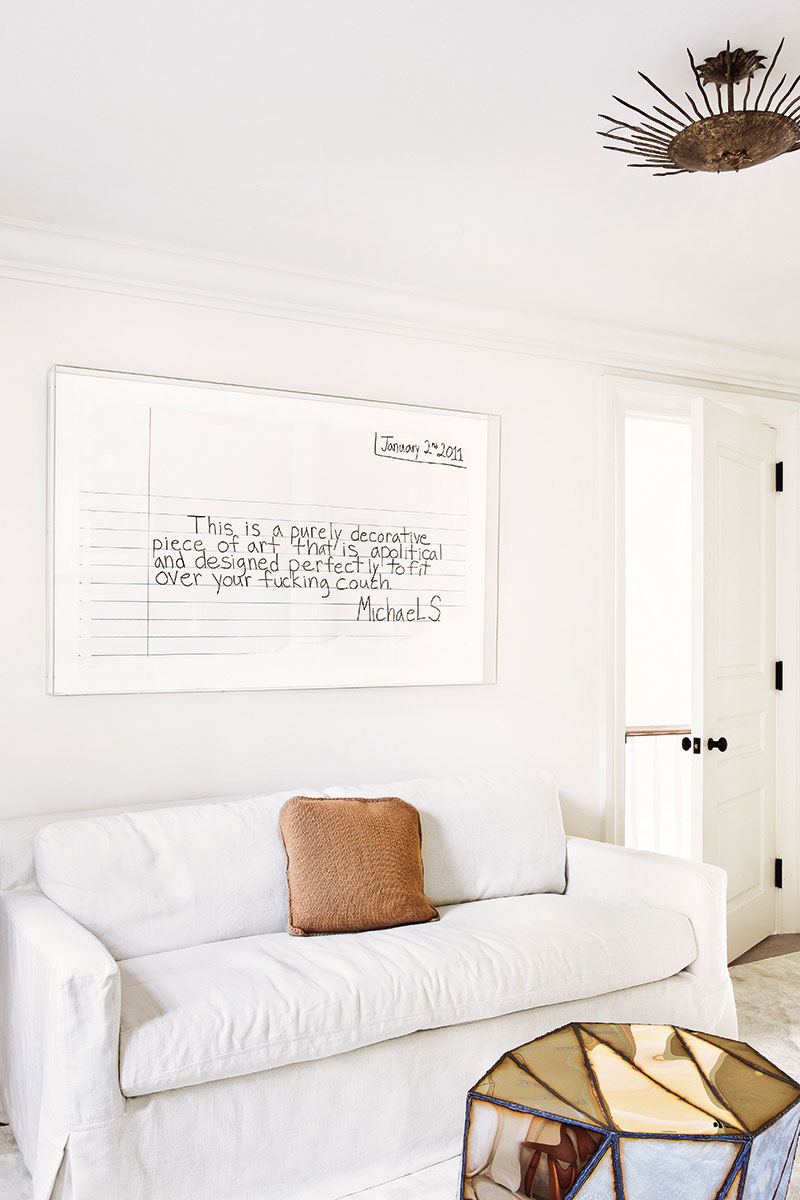 January 2nd 2011
This is a purely decorative
piece of art that is apolitical
and designed perfectly to fit
over your fucking couch.
Michael S.